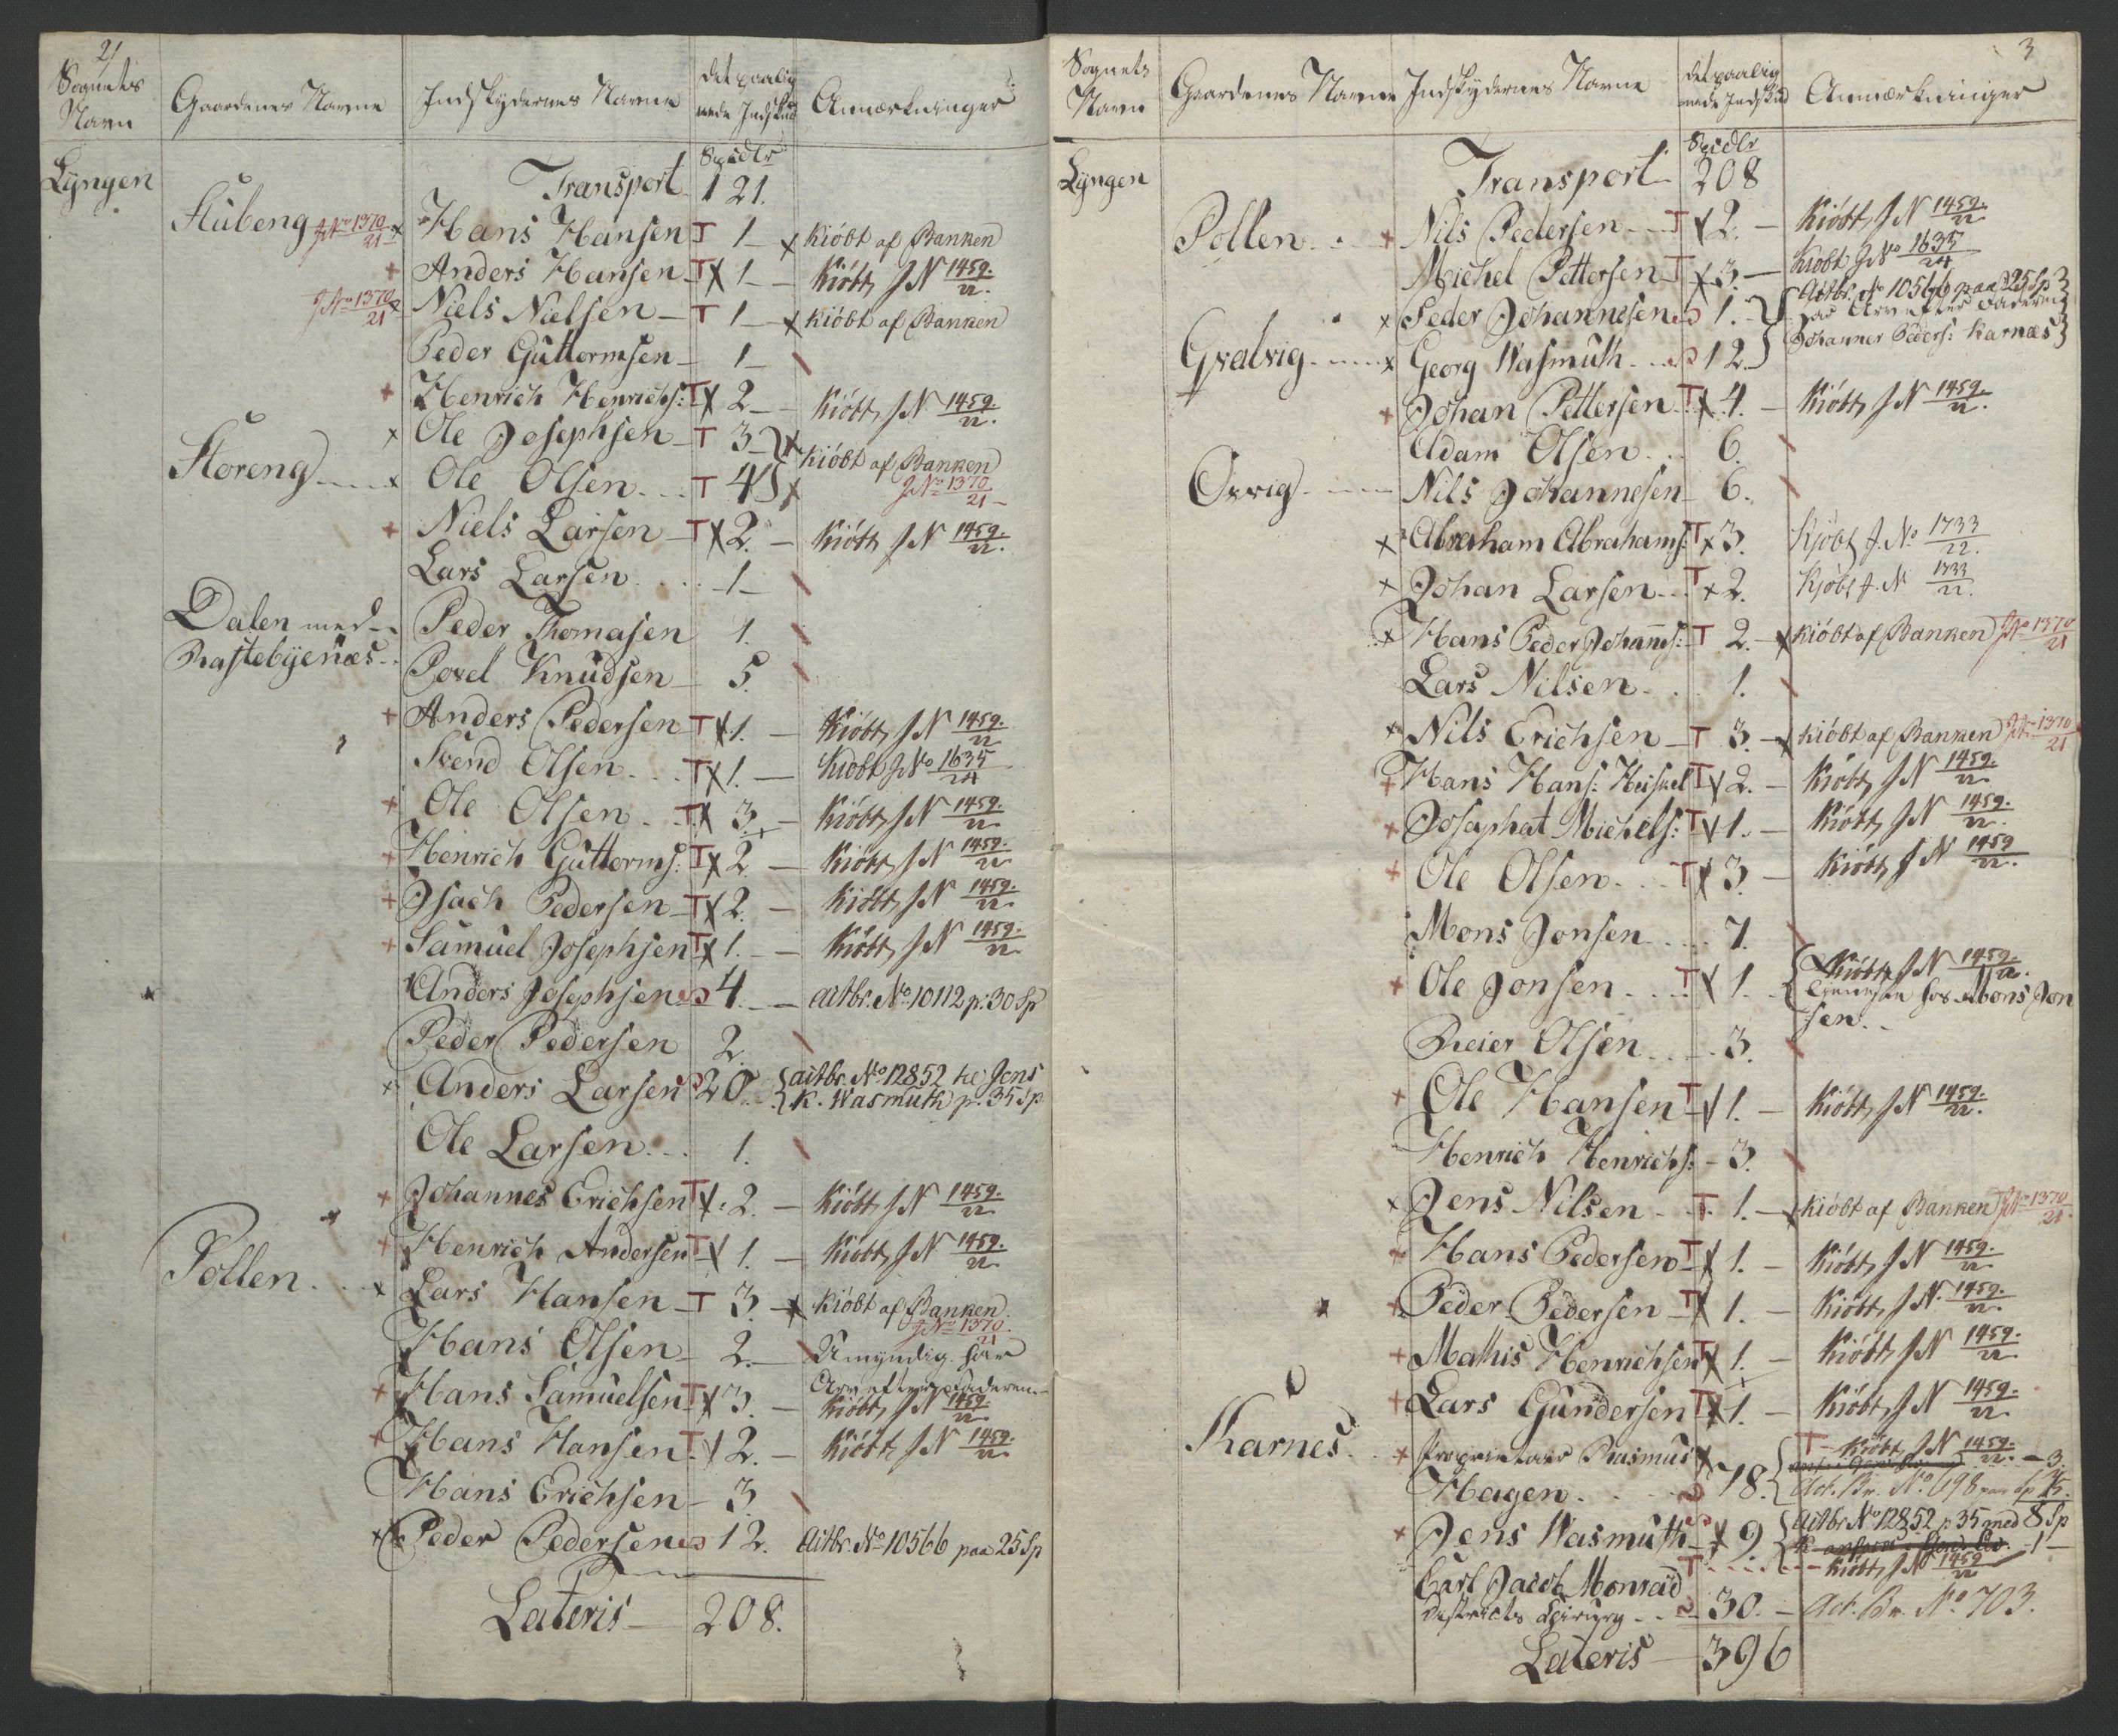 2
Sognets Navn | Gaardenes Navne | Indskydernes Navne | Det paalignede Indskud | Anmærkninger
Spedlr
Lyngen | Transport 121.
Stubeng JNo 1370/21 x Hans Hansen T 1 – x Kiöbt af Banken
+ Anders Hansen T x 1 – Kiöbt JN 1459./22.
JNo 1370/21 x Niels Nielsen – T 1 – x Kiöbt af Banken
Peder Guttormsen – 1 –
+ Henrich Henrichs: T x 2 – Kiöbt JN 1459./22.
x Ole Josephsen – T 3 – x
Storeng x Ole Olsen T 4 x Kiöbt af Banken
JNo 1370/21
+ Niels Larsen – T x 2. – Kiöbt JN 1459./22.
Lars Larsen 1 –
Dalen med Peder Thomasen 1.
Rastebyenæs Povel Knudsen – 5.
+ Anders Pedersen T x 1. – Kiöbt JN 1459./22
Svend Olsen T x 1. – Kiöbt JNo 1635/24
+ Ole Olsen T x 3. – Kiöbt JN 1459./22
+ Henrich Guttorms: T x 2 – Kiöbt JN 1459./22
+ Isach Pedersen T x 2. – Kiöbt JN 1459./22
+ Samuel Josephsen T x 1. – Kiöbt JN 1459./22
Anders Josephsen 4. – Actbr. No 10112 p. 30 Sp
Peder Pedersen 2.
x Anders Larsen 20 { Actbr. No 12852 til Jens
K. Wasmuth p. 35 Sp
Ole Larsen 1.
+ Johannes Erichsen T x 2. – Kiöbt JN 1459./22
+ Henrich Andersen T x 1. – Kiöbt JN 1459./22
Pollen x Lars Hansen – T 3. – x Kiöbt af Banken
JNo 1370/21
Hans Olsen – 2. – Umyndig. har
Arv efter Faderen
+ Hans Samuelsen T x 3. – Kiöbt JN 1459./22
+ Hans Hansen T x 2. – Kiöbt JN 1459./22
Hans Erichsen – 3.
x Peder Pedersen 12. Actbr. No 10566 paa 25 Sp
Lateris – 208.
3
Sognets Navn | Gaardenes Navne | Indskydernes Navne | det paalignede Indskud | Anmærkninger
Spedlr
Lyngen | Transport 208
Pollen + Nils Pedersen T x 2. – Kiöbt JN 1459./22
Michel Pettersen T x 3. – Kiöbt JNo 1635/24
x Peder Johannesen 1. Actbr. No 10566 paa 25 Sp
har Arv efter Faderen
Johannes Peders: Karnæs
Qvalvig x Georg Wasmuth 12.
+ Johan Pettersen T x 4. – Kiöbt JN 1459./22.
Adam Olsen 6.
Oxvig Nils Johannesen – 6.
x Abraham Abrahams: T x 3. Kjöbt J. No 1733/22.
x Johan Larsen T x 2. Kjöbt J. N 1733/22.
x Hans Peder Johanns: T 2. – x Kiöbt af Banken JNo 1370/21
Lars Nilsen 1.
x Nils Erichsen – T 3. – x Kiöbt af Banken JNo 1370/21
+ Hans Hans: Heiskel T x 2. – Kiöbt JN 1459./22
+ Josaphat Michels: T x 1. – Kiöbt JN 1459./22.
+ Ole Olsen T x 3. – Kiöbt JN 1459/22.
Mons Jonsen 7.
+ Ole Jonsen T x 1. { Kiöbt JN 1459./22.
tjeneste hos Mons Jon
sen
Reier Olsen 3.
+ Ole Hansen T x 1. – Kiöbt JN 1459./22.
Henrich Henrichs: – 3.
x Jens Nilsen T 1. – x Kiöbt af Banken JNo 1370/21
+ Hans Pedersen T x 1. – Kiöbt JN 1459./22
+ Peder Pedersen – T x 1. – Kiöbt JN. 1459./22.
+ Mathis Henrichsen T x 1. – Kiöbt JN 1459./22
+ Lars Gundersen T x 1. – Kiöbt JN 1459./22
Karnes + Proprietair Rasmus x { T – Kiöbt JN 1459./22. – 3.
Hagen 78. Act. Br. No 698 paa Sp 75.
+ Jens Wasmuth x 9 { Actbr No 12852 p 35 med 8 Sp
– 1 –
T – Kiöbt JNo 1459/22
Carl Jacob Monrad
Districts Chirurg 30. – Act. Br. No 703.
Lateris – 396